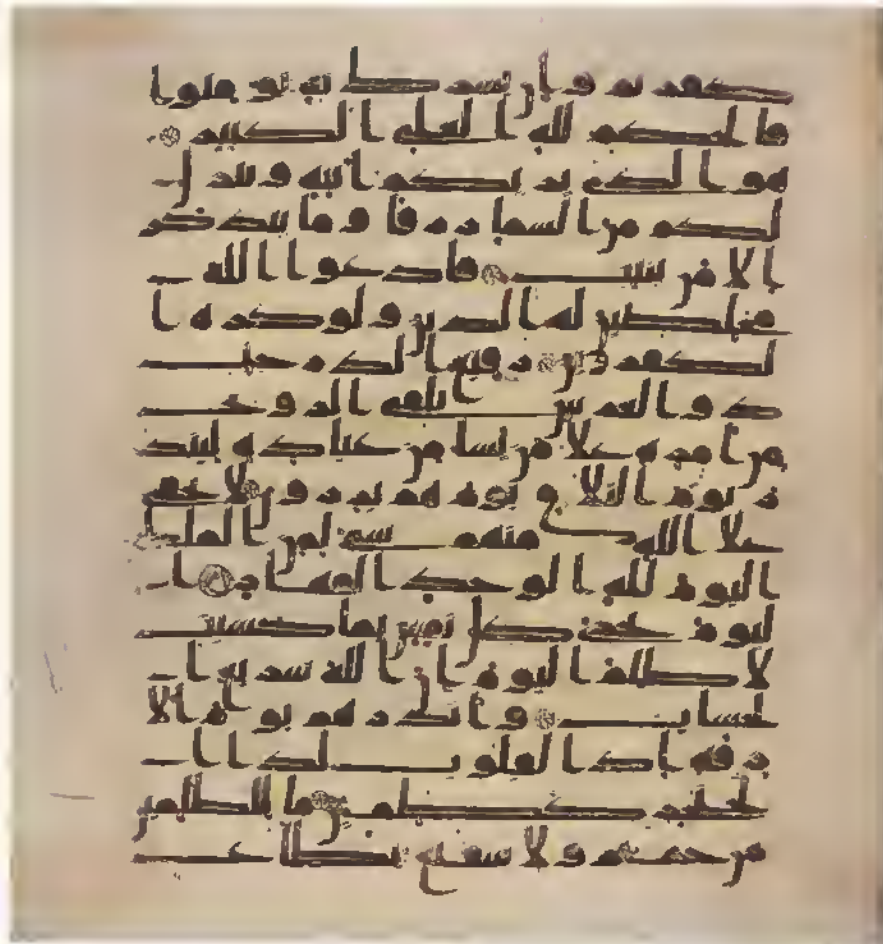 كفرتم وان يشرك به تومنوا
فالحكم لله العلي الكبير
هو الذي يريكم ايته وينزل
لكم من السما رزقا وما يتذكر
الا من ينيب فادعوا الله
مخلصين له الدين ولو كره ا
لكفرون رفيع الدرجت
ذو العرش يلقي الروح
من امره على من يشا من عباده لينذ
ر يوم التلاق يوم هم برزون لا يخفى
على الله منهم شي لمن الملك
اليوم لله الوحد القهار ا
ليوم تجزى كل نفس بما كسبت
لا ظلم اليوم ان الله سريع ا
لحساب وانذرهم يوم الاز
فة اذ القلوب لدى ا
لحناجر كظمين ما للظلمين
من حميم ولا شفيع يطاع